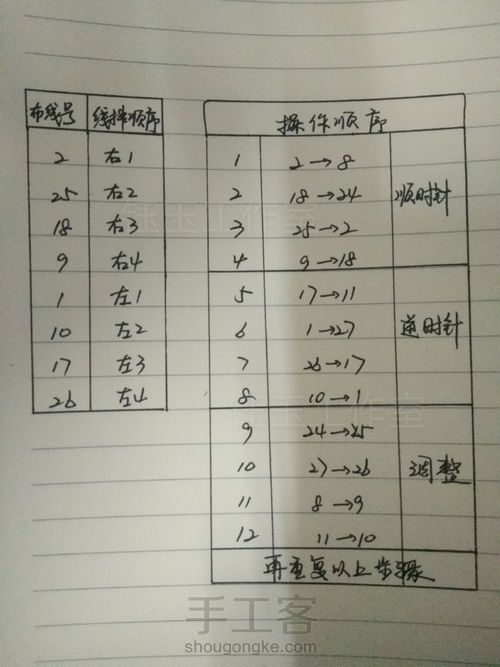 布线号 线摆顺序
2 右1
25 右2
18 右3
9 右4
1 左1
10 左2
17 左3
26 左4
操作顺序
1 2→8
2 18→24
3 25→2
4 9→18
顺时针
5 17→11
6 1→27
7 26→17
8 10→1
逆时针
9 24→25
10 27→26
11 8→9
12 11→10
调整
再重复以上步骤
手工客
shougongke.com